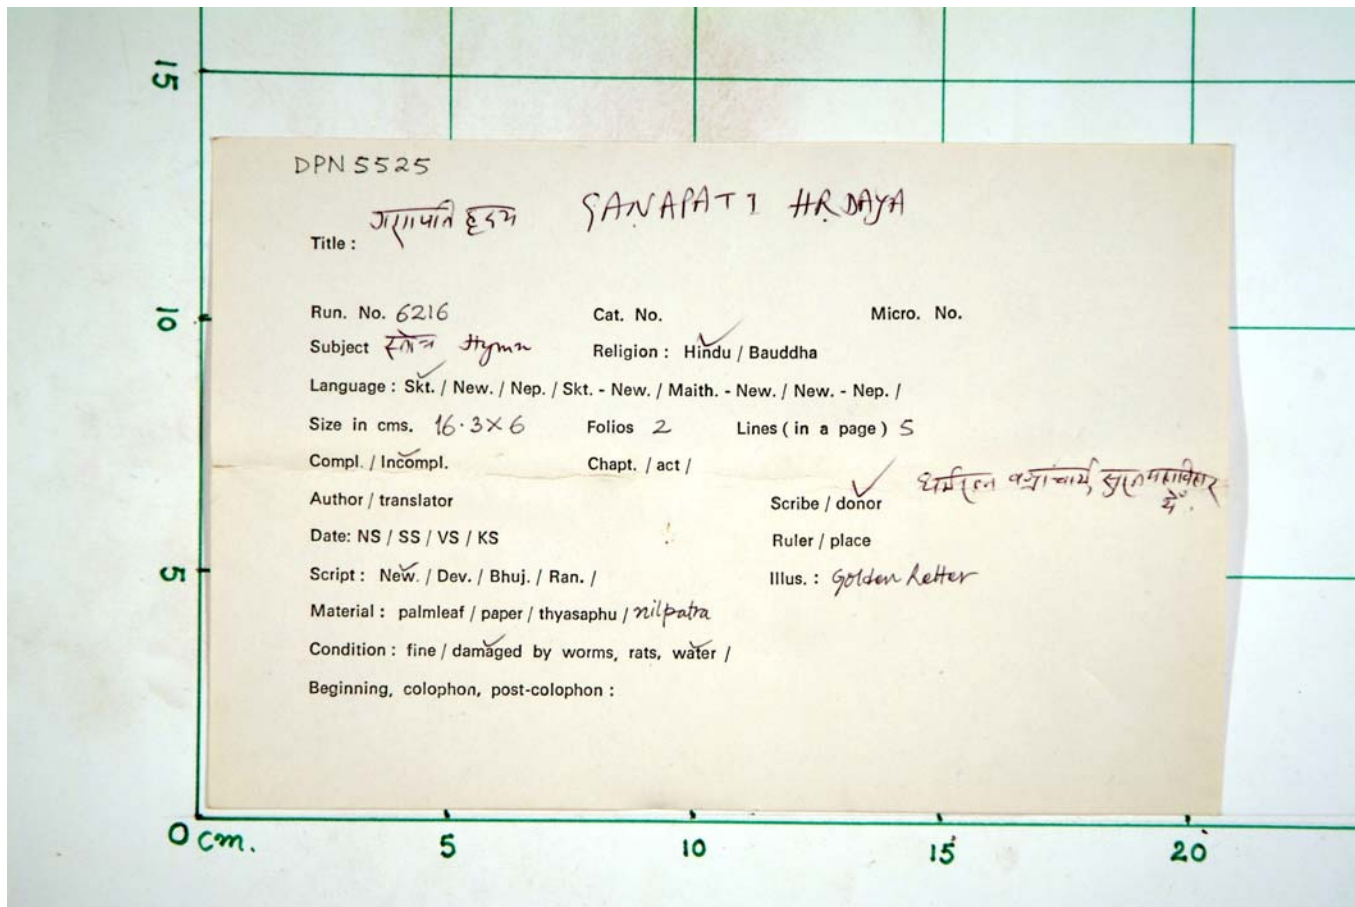 DPN 5525
गणपति हृदय GAṆAPATI HṚDAYA
Title :
Run. No. 6216 Cat. No. Micro. No.
Subject स्तोत्र Hymn Religion : Hindu / Bauddha
Language : Skt. / New. / Nep. / Skt. - New. / Maith. - New. / New. - Nep. /
Size in cms. 16.3×6 Folios 2 Lines ( in a page ) 5
Compl. / Incompl. Chapt. / act /
Author / translator Scribe / donor धर्मरत्न वज्राचार्य,
Date: NS / SS / VS / KS Ruler / place
Script : New. / Dev. / Bhuj. / Ran. / Illus. : Golden Letter
Material : palmleaf / paper / thyasaphu / nilpatra
Condition : fine / damaged by worms, rats, water /
Beginning, colophon, post-colophon :
15
10
5
0 cm. 5 10 15 20